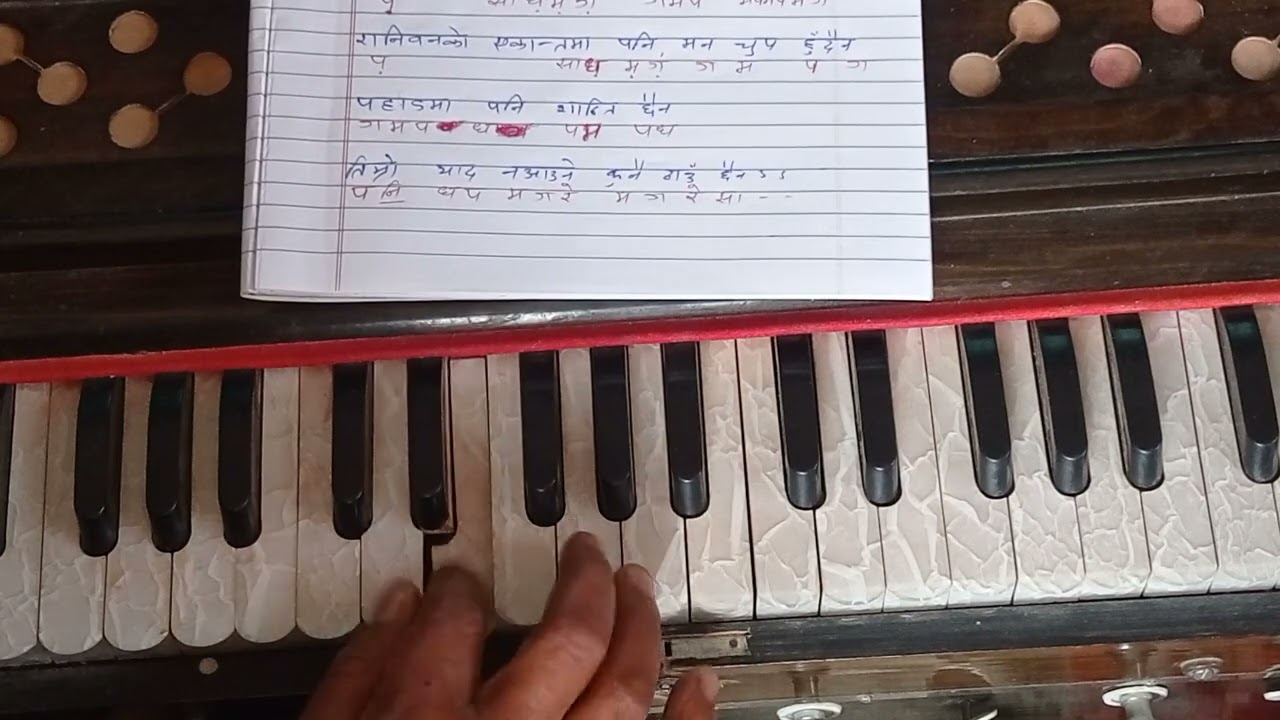 प़ साध़म़ग़ गमप
रानिवनको एकान्तमा पनि मन चुप हुँदैन
प़ साध़ म़ग़ ग म प ग
पहाडमा पनि शान्ति छैन
गमप ध पम पध
तिम्रो याद नआउने कुनै ठाउँ छैन ऽऽ
प नि॒ धप म ग रे म ग रे सा - -